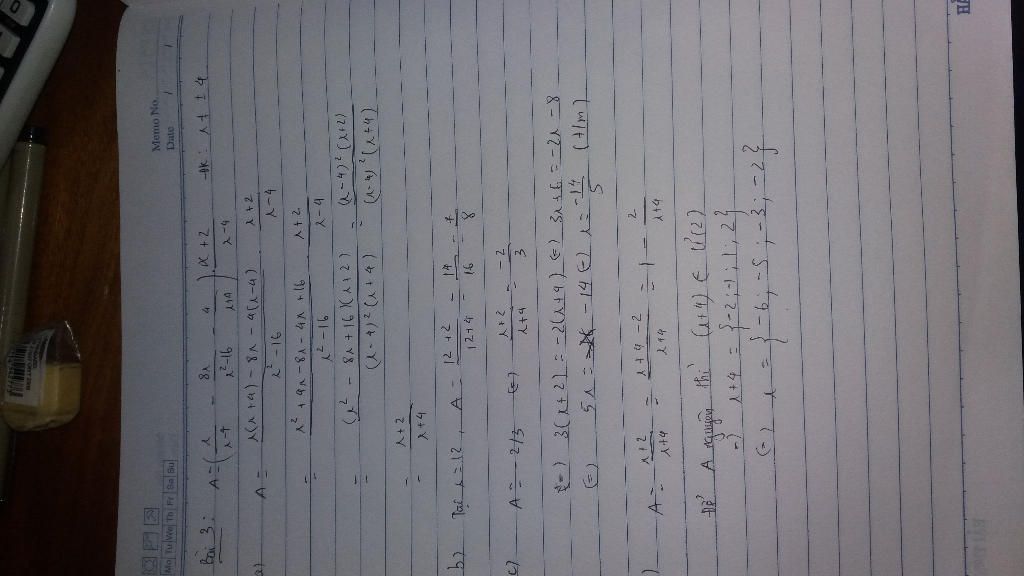 Memo No.
Date / /
Mo Tu We Th Fr Sa Su
Bài 3: A = (x/x-4 - 8x/x²-16 - 4/x+4) . x+2/x-4 ĐK: x ≠ ± 4
a) A = x(x+4) - 8x - 4(x-4)/x²-16 . x+2/x-4
= x² + 4x - 8x - 4x + 16/x²-16 . x+2/x-4
= (x² - 8x + 16)(x+2)/(x-4)²(x+4) = (x-4)²(x+2)/(x-4)²(x+4)
= x+2/x+4
b) Tại x = 12, A = 12+2/12+4 = 14/16 = 7/8
c) A = -2/3 (=) x+2/x+4 = -2/3
(=) 3(x+2) = -2(x+4) (=) 3x+6 = -2x-8
(=) 5x = -14 (=) x = -14/5 (t/m)
) A = x+2/x+4 = x+4-2/x+4 = 1 - 2/x+4
Để A nguyên thì (x+4) ∈ Ư(2)
=) x+4 = {-2; -1; 1; 2}
(=) x = {-6; -5; -3; -2}